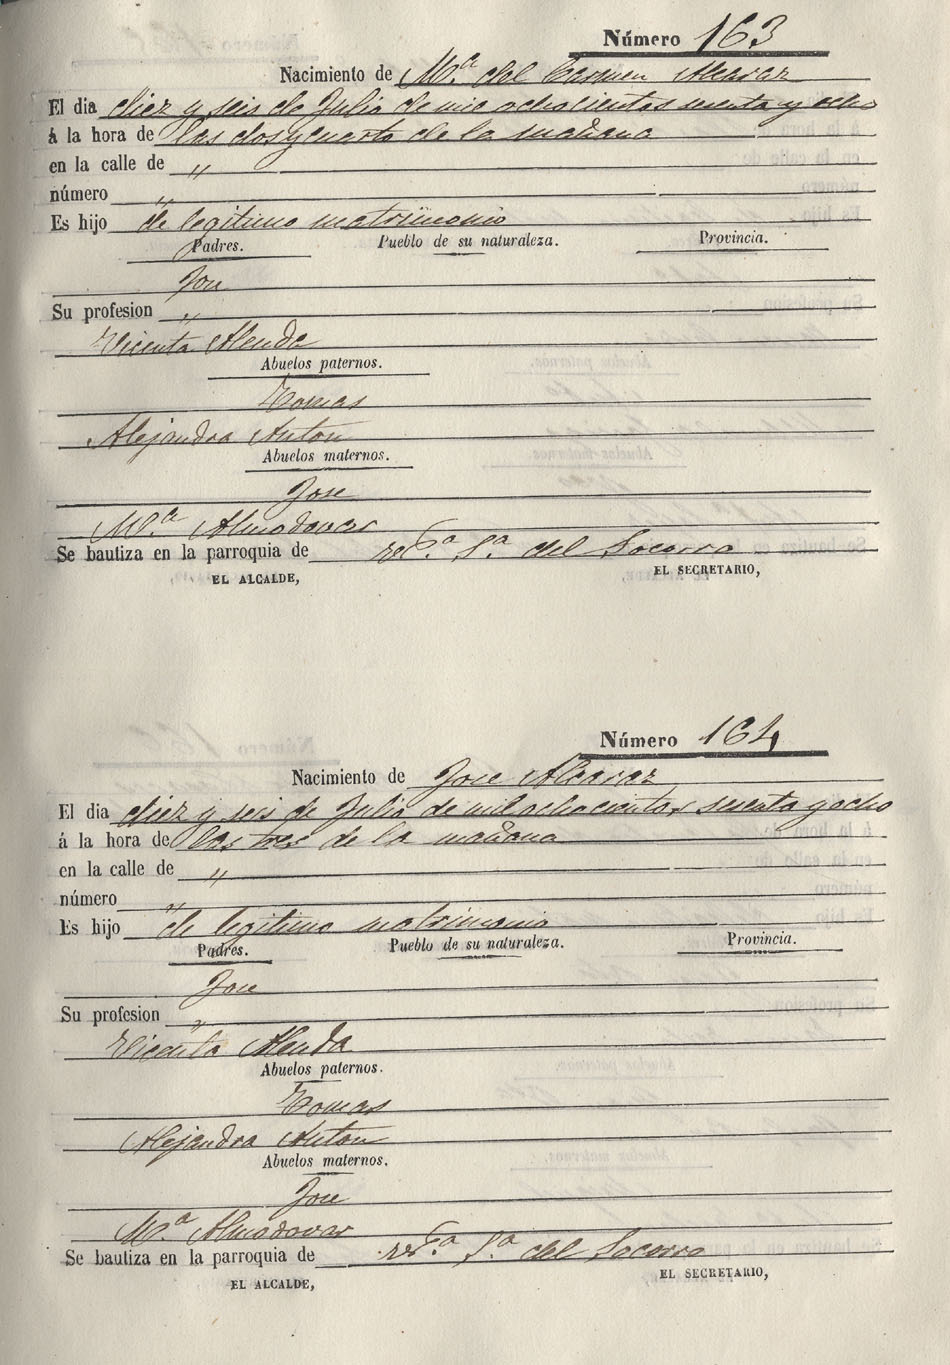 Número 163
Nacimiento de Mª del Carmen Alcaraz
El dia diez y seis de Julio de mil ochocientos sesenta y ocho
á la hora de las dos y cuarto de la mañana
en la calle de "
número "
Es hijo de legitimo matrimonio
Padres. Pueblo de su naturaleza. Provincia.
Jose
Su profesion "
Vicenta Alenda
Abuelos paternos.
Tomas
Alejandra Anton
Abuelos maternos.
Jose
Mª Almodovar
Se bautiza en la parroquia de Sª del Socorro
EL ALCALDE, EL SECRETARIO,
Número 164
Nacimiento de Jose Alcaraz
El dia diez y seis de Julio de mil ochocientos sesenta y ocho
á la hora de las tres de la mañana
en la calle de "
número "
Es hijo de legitimo matrimonio
Padres. Pueblo de su naturaleza. Provincia.
Jose
Su profesion "
Vicenta Alenda
Abuelos paternos.
Tomas
Alejandra Anton
Abuelos maternos.
Jose
Mª Almodovar
Se bautiza en la parroquia de Sª del Socorro
EL ALCALDE, EL SECRETARIO,